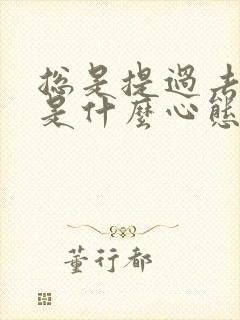 总是提過去
是什麽心態
董行都